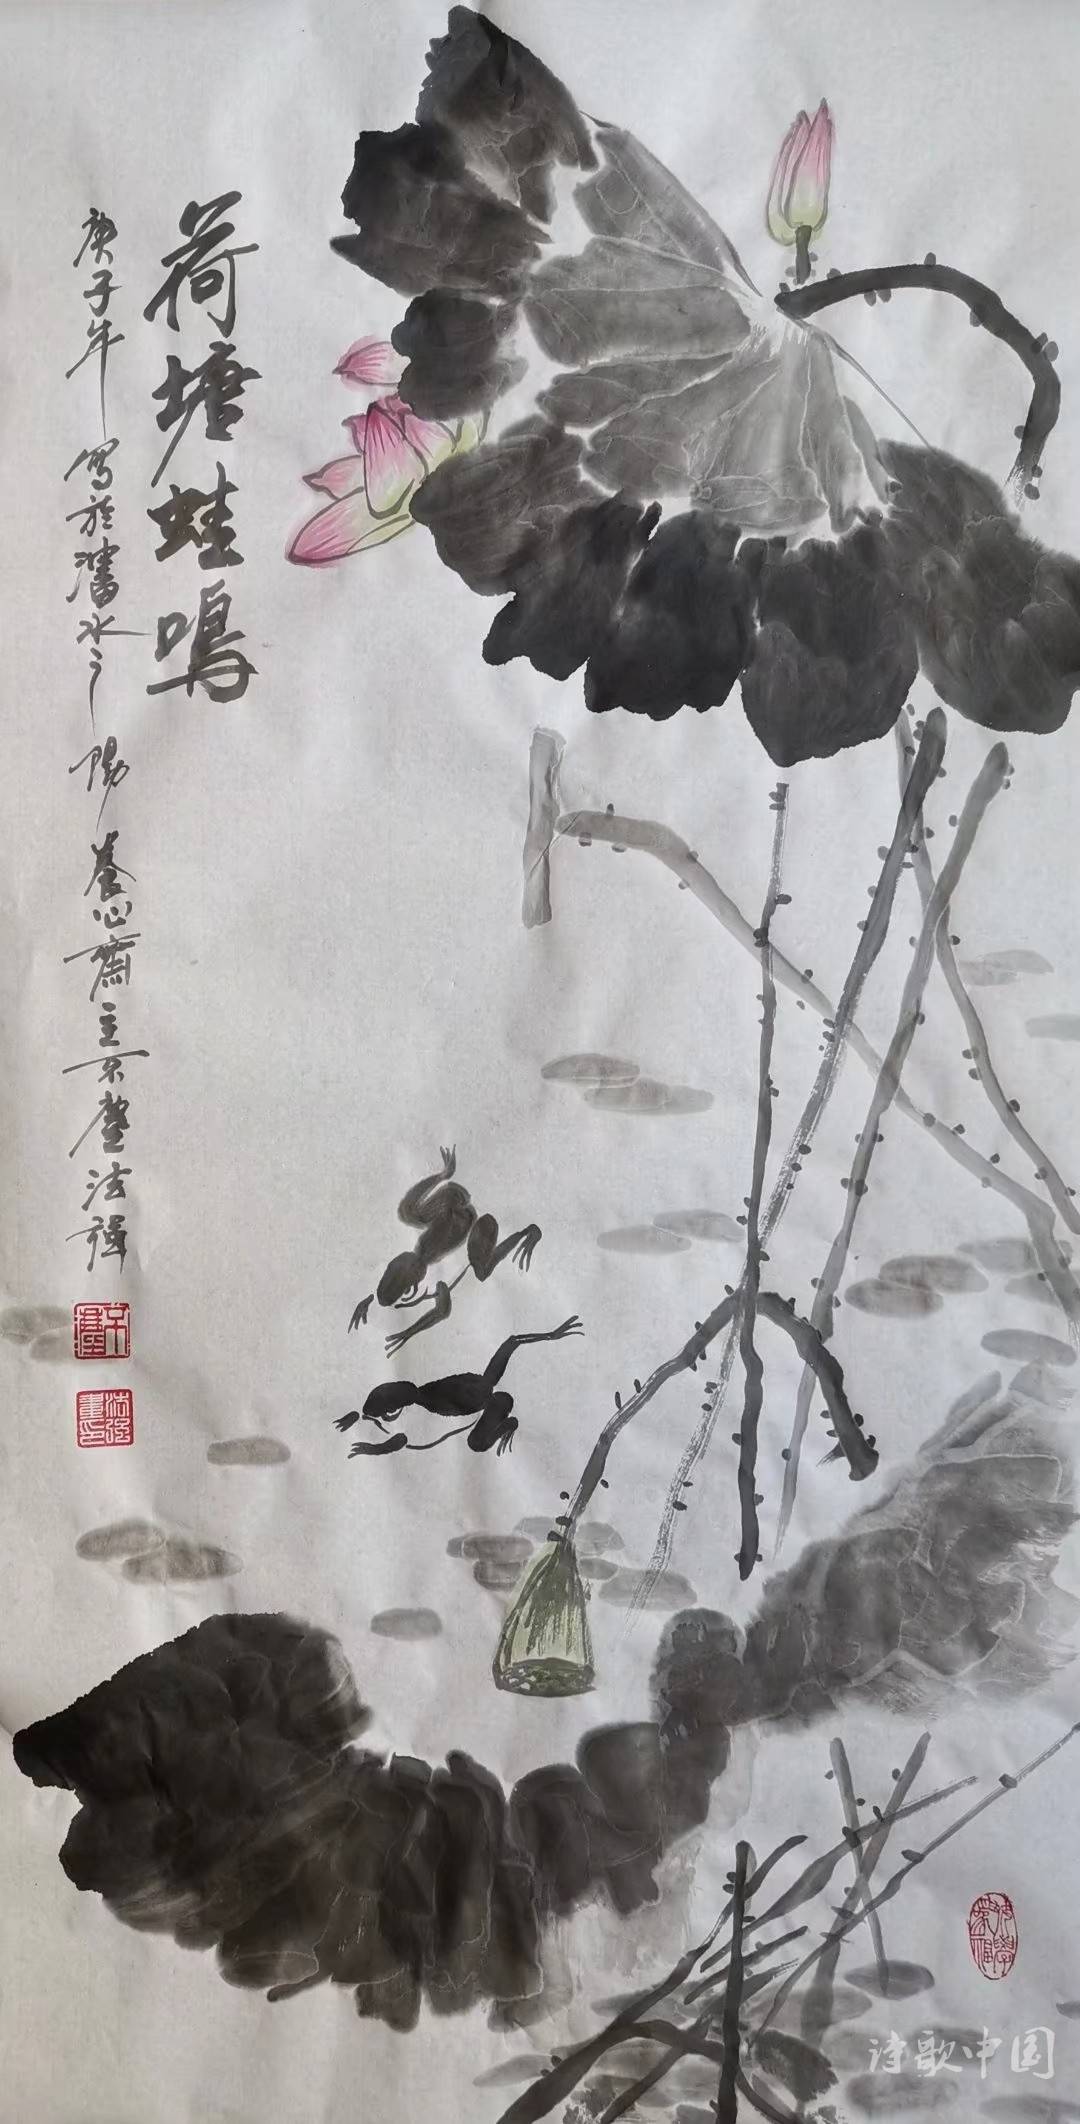 荷塘蛙鳴
庚子年寫於瀋水之陽養心齋主
法強
法強畫印
诗歌中国